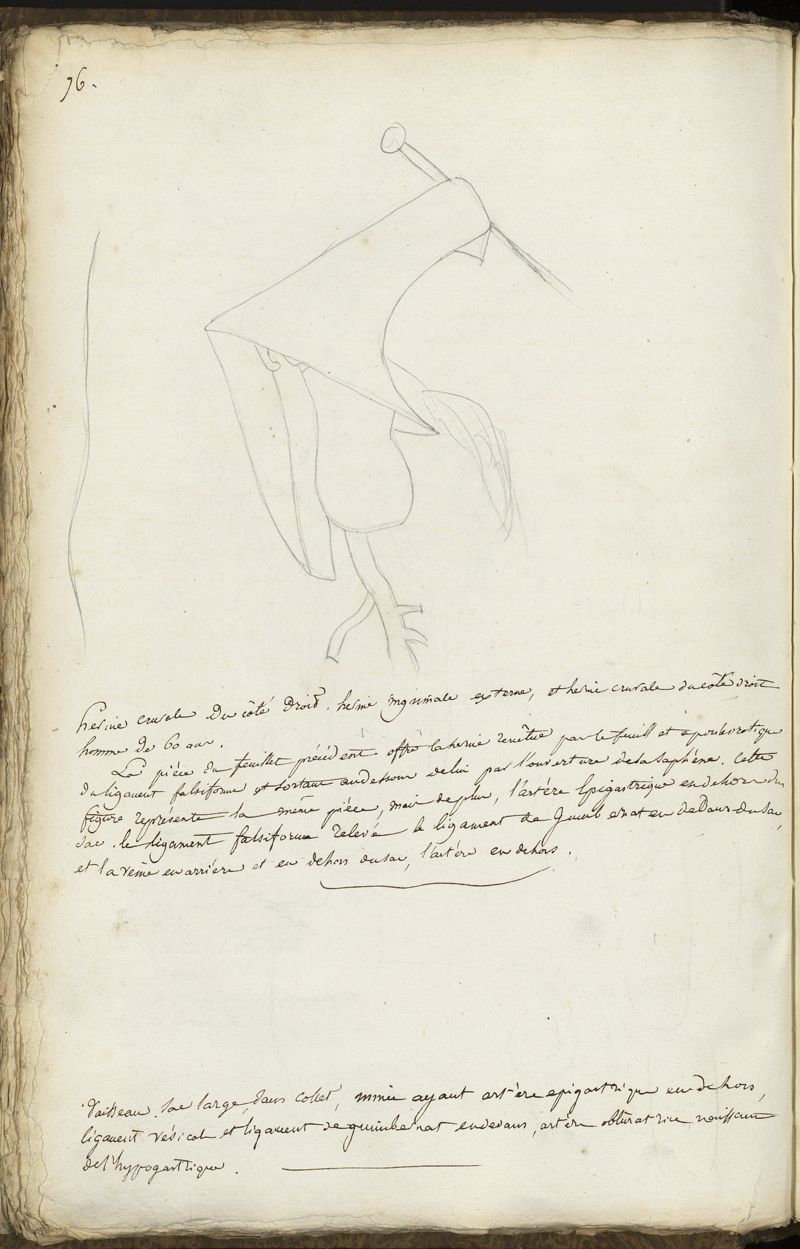 76.
hernie crurale du côté droit. hernie inguinale externe, et hernie crurale du côté droit
homme de 60 ans.
La pièce du feuillet précédent offre la hernie revêtue par le feuillet aponévrotique
du ligament falsiforme et sortant au dessous de lui par l'ouverture de la saphène. Cette
figure représente la même pièce, mais de plus, l'artère Epigastrique en dehors du
sac. le ligament falsiforme relevé le ligament de Guimbernat en dedans du sac,
et la veine en arrière et en dehors du sac, l'artère en dehors.
Vaisseau. Sac large, sans collet, mince ayant artère epigastrique en dehors,
ligament vésical et ligament de guimbernat en dedans, artère obturatrice naissant
de l'hypogastrique.